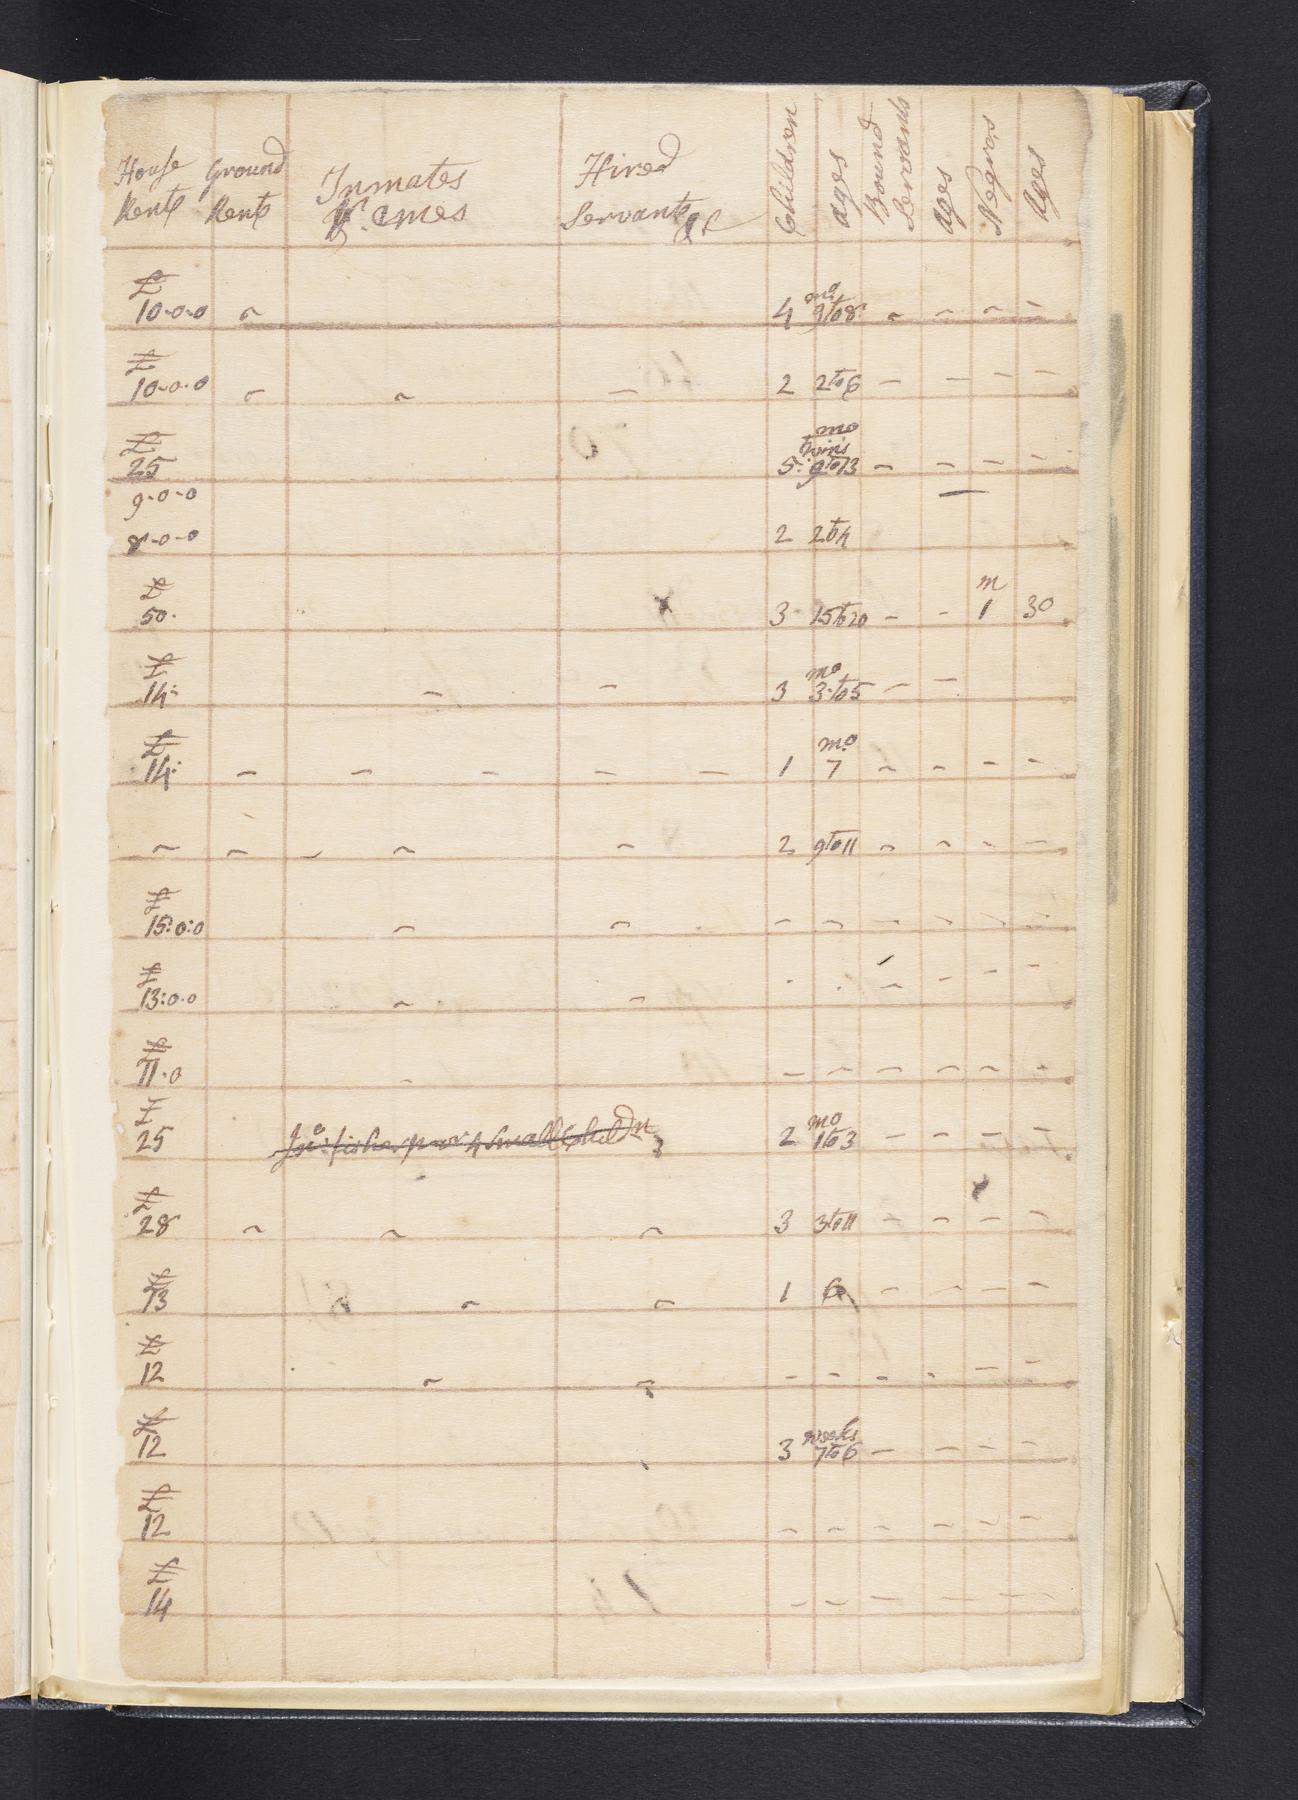 House Rents Ground Rents Inmates Names Hired Servants &c Children Ages Bound Servants Ages Negros Ages
£ 10-0-0 ~ 4 mo 9 to 8 - - - -
£ 10-0-0 - - - 2 2 to 6 - - - -
£ 25 5: mo twins 9 to 13 - - - -
9-0-0
8-0-0 2 2 to 4
£ 50. 3 15 to 20 - - m 1 30
£ 14: - - 3 mo 3 to 5 - -
£ 14: - - - - - 1 mo 7 - - - -
- - - - - 2 9 to 11 - - - -
£ 15:0:0 - - - - - - - -
£ 13:0:0 - - - - - -
£ 11.0 - - - - - - -
£ 25 Jno: fisher poor 4 Small Childn 3 2 mo 1 to 3 - - - -
£ 28 - - - 3 3 to 11 - - - -
£ 13 - - - 1 6 - - - -
£ 12 - - - - - - - -
£ 12 3 weeks 7 to 6 - - - -
£ 12 - - - - - -
£ 14 - - - - - -